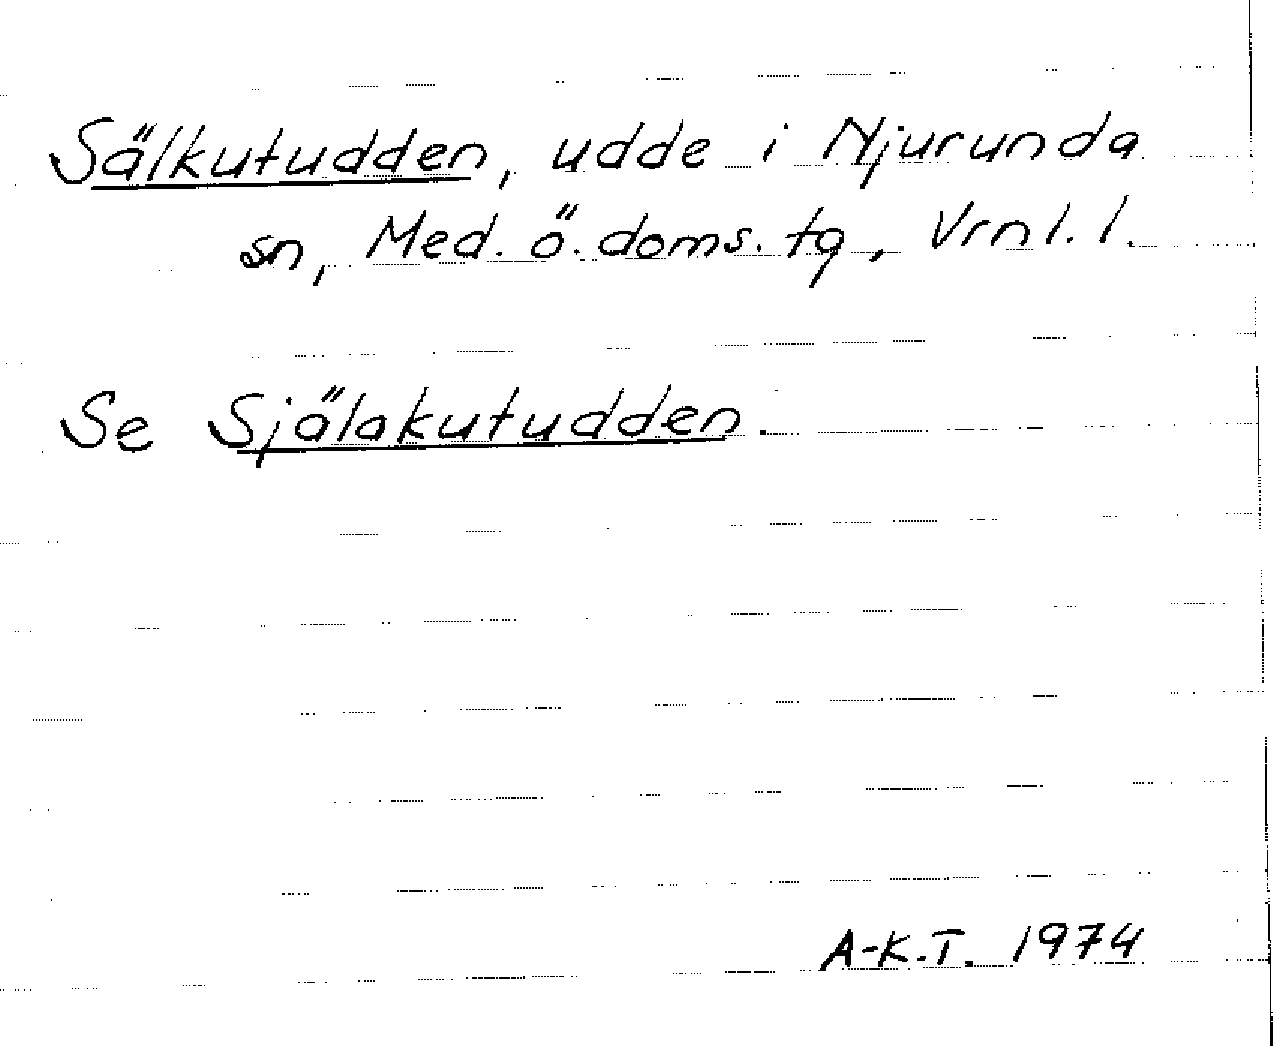 Sälkutudden, udde i Njurunda
sn, Med. ö. doms. tg, Vrnl. l.
Se Själakutudden.
A-K.T. 1974